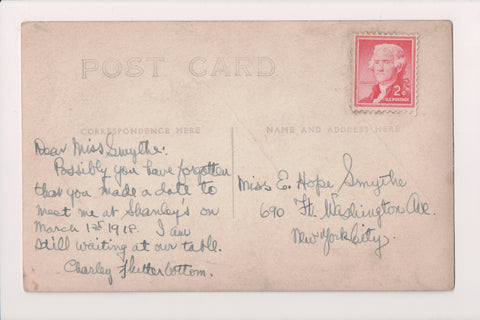 POST CARD
2¢
U.S. POSTAGE
CORRESPONDENCE HERE
NAME AND ADDRESS HERE
Dear Miss Smythe:
Possibly you have forgotten
that you made a date to
meet me at Shanley's on
March 1st 1918. I am
still waiting at our table.
Charley Flutterbottom.
Miss E. Hope Smythe
690 Ft. Washington Ave.
New York City.